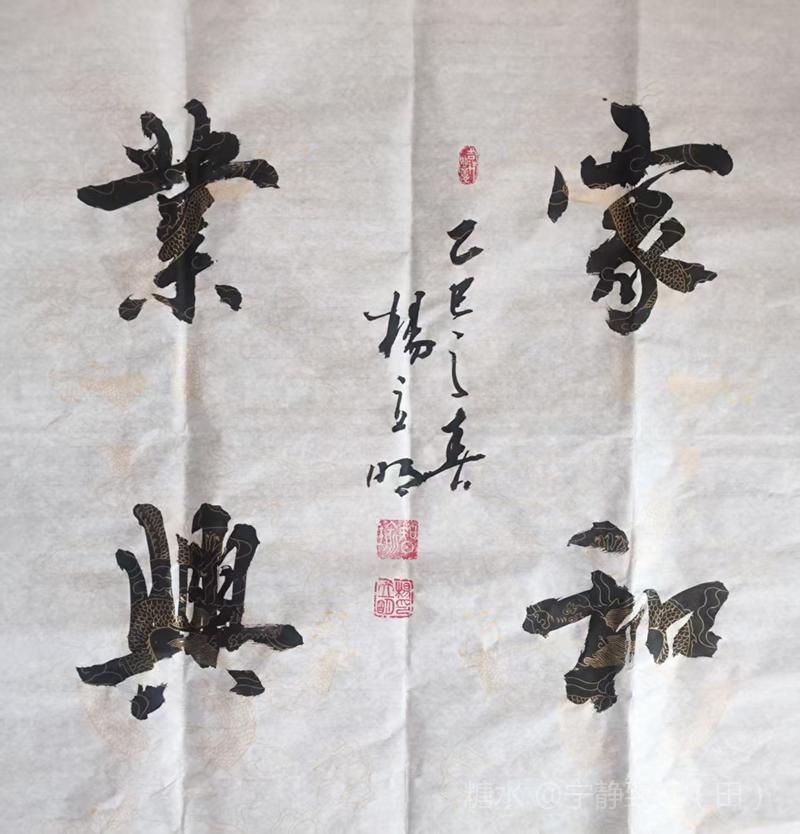 家和
業興
乙巳之春
楊立明
糖水 @宁静